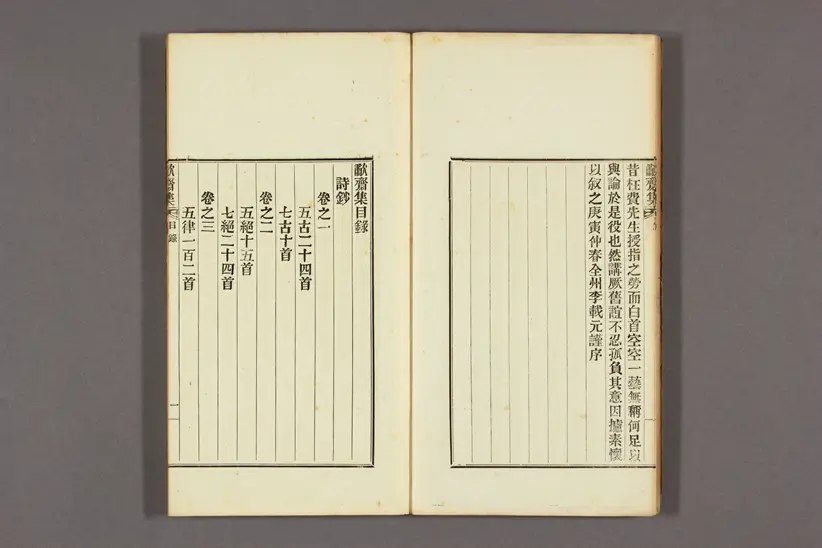 齋集
昔枉費先生授指之勞而白首空空一藝無稱何足以
與論於是役也然講厥舊誼不忍孤負其意因攄素懷
以叙之庚寅仲春全州李載元謹序
歗齋集目錄
詩鈔
卷之一
五古二十四首
七古十首
卷之二
五絕十五首
七絕二十四首
卷之三
五律一百二首
歗齋集
目錄
一